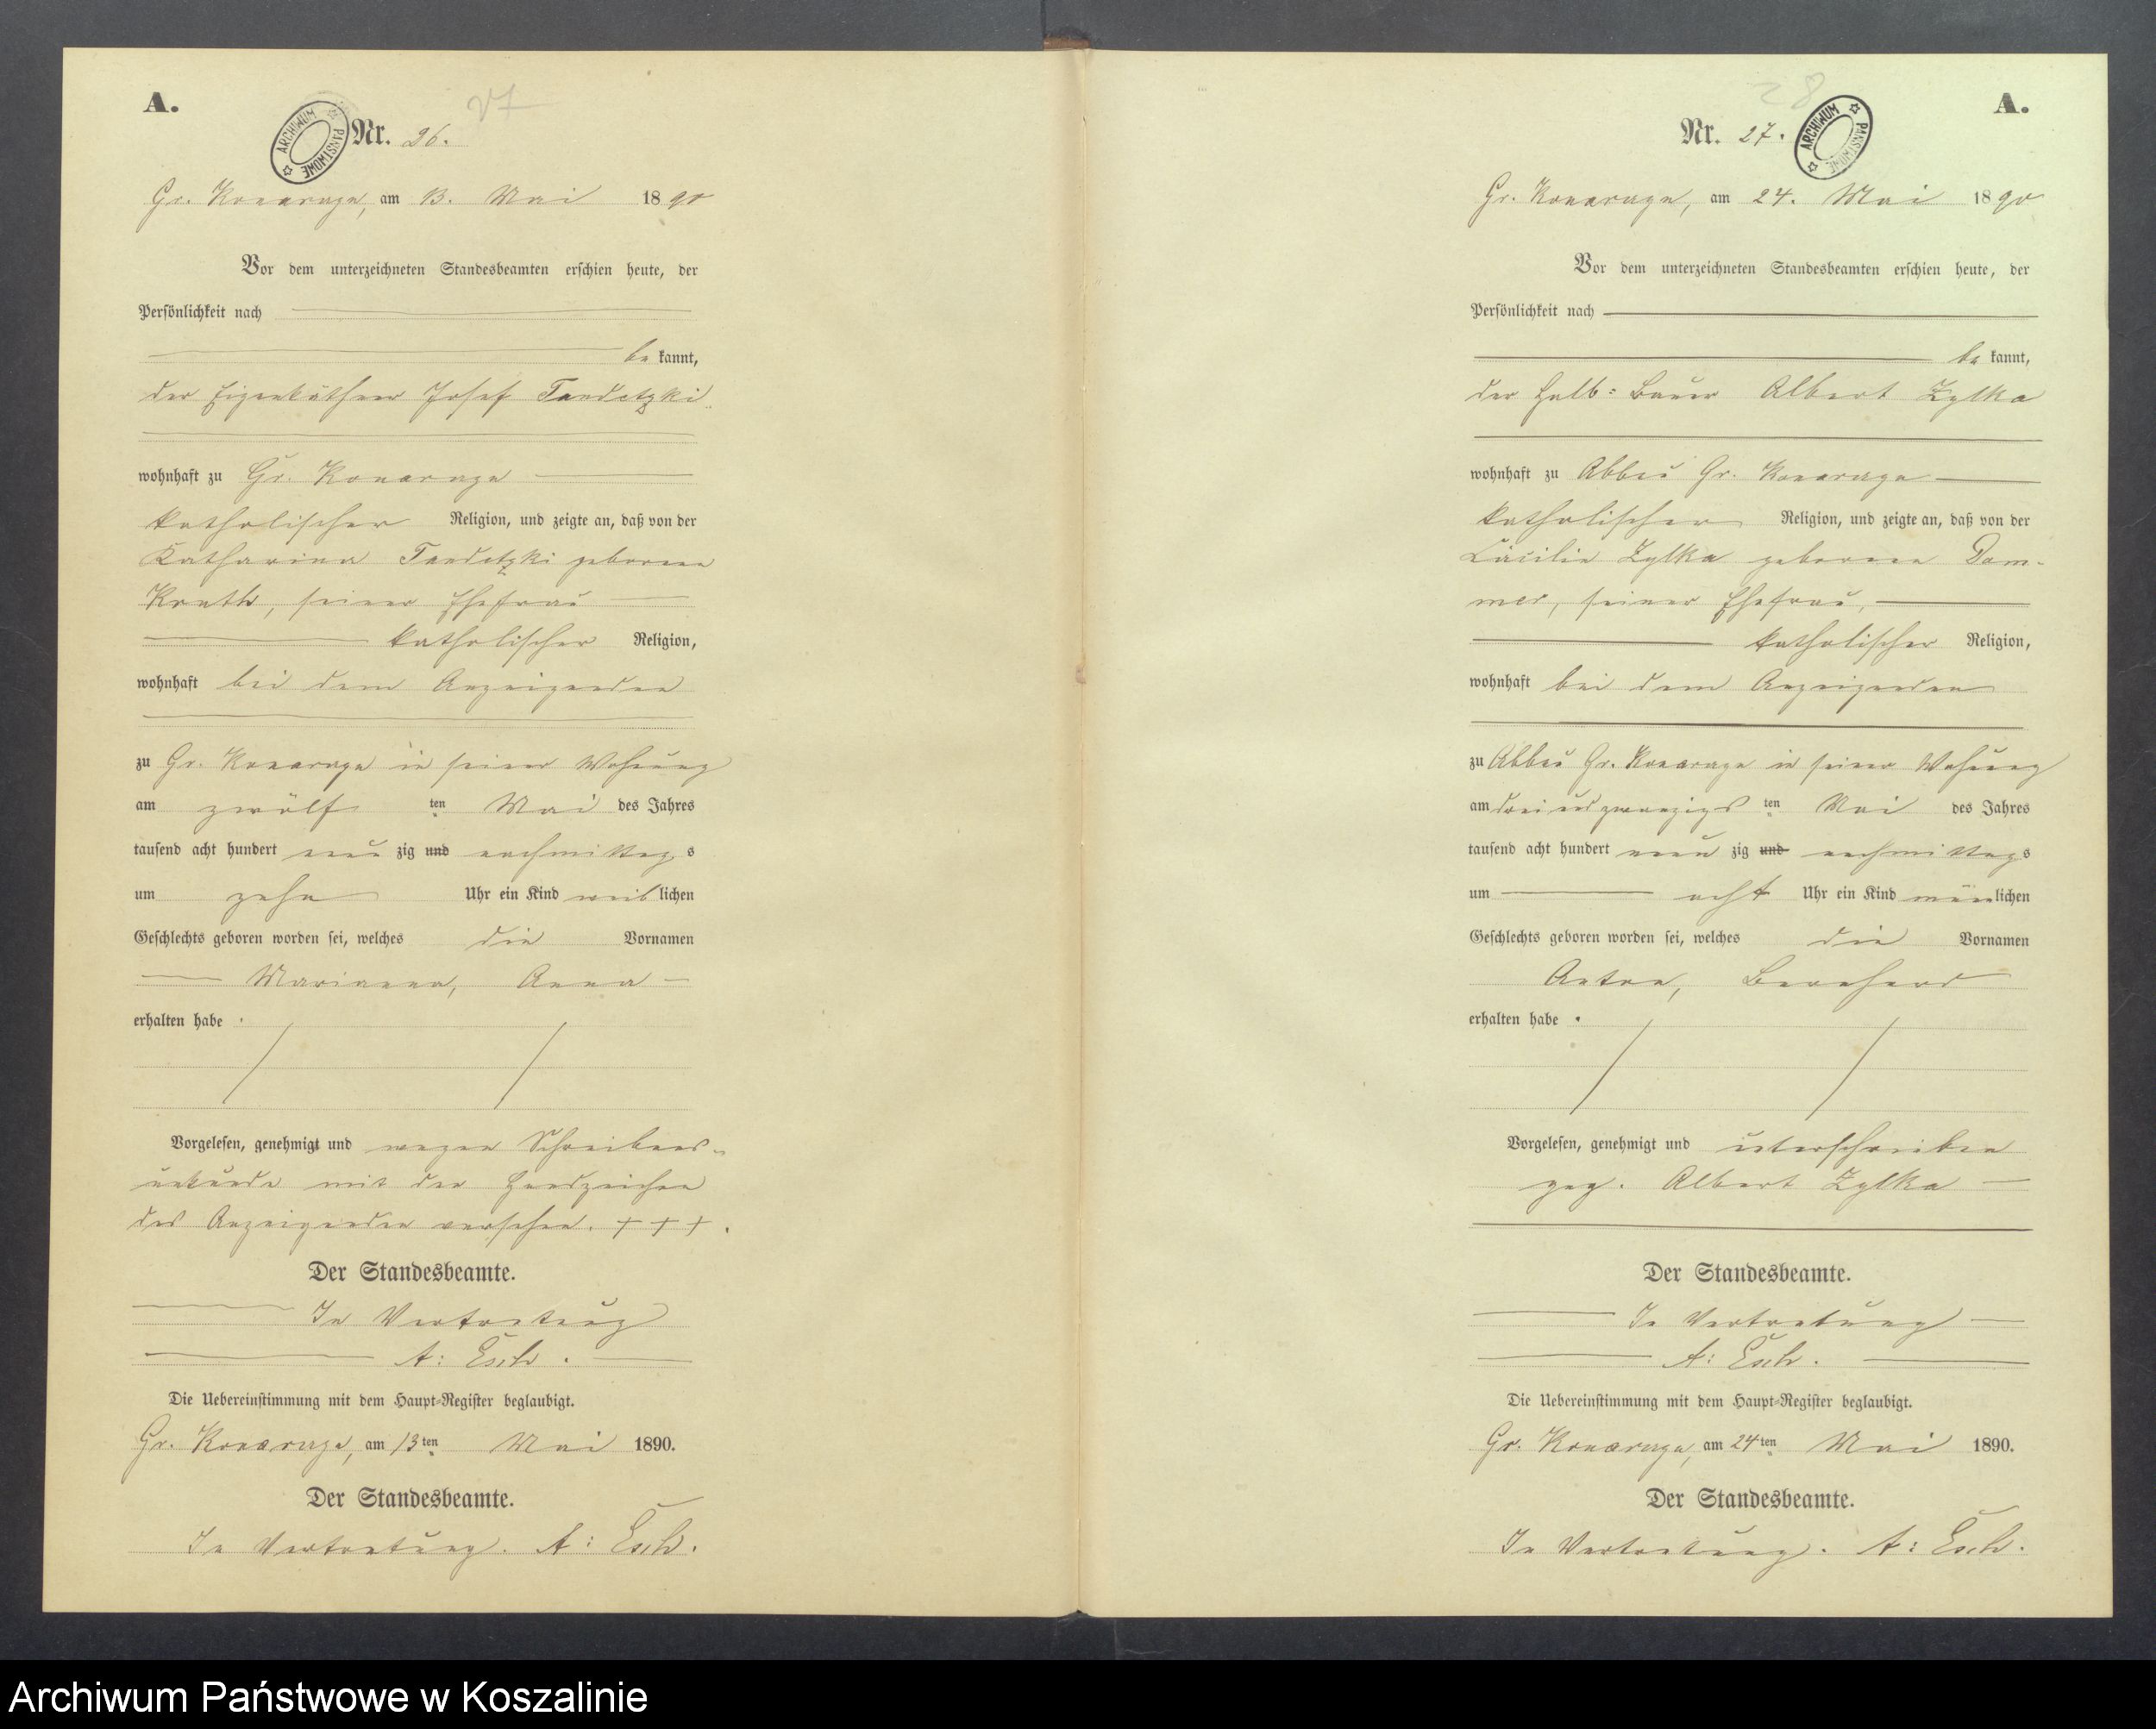 A.
27
ARCHIWUM PAŃSTWOWE
Nr. 26.
Gr. Konarzyn, am 13. Mai 1890
Vor dem unterzeichneten Standesbeamten erschien heute, der
Persönlichkeit nach
be kannt,
der Eigenkäthner Josef Tandetzki
wohnhaft zu Gr. Konarzyn
katholischer Religion, und zeigte an, daß von der
Katharina Tandetzki geborene
seiner Ehefrau
katholischer Religion,
wohnhaft bei dem Anzeigenden
zu Gr. Konarzyn in seiner Wohnung
am zwölf ten Mai des Jahres
tausend acht hundert neun zig und nachmittags
um zehn Uhr ein Kind weiblichen
Geschlechts geboren worden sei, welches die Vornamen
Marianna, Anna
erhalten habe.
Vorgelesen, genehmigt und wegen Schreibens-
unkunde mit den Handzeichen
des Anzeigenden versehen. + + +.
Der Standesbeamte.
In Vertretung
A: Esch.
Die Uebereinstimmung mit dem Haupt-Register beglaubigt.
Gr. Konarzyn, am 13ten Mai 1890.
Der Standesbeamte.
In Vertretung. A: Esch.
28
A.
Nr. 27.
ARCHIWUM PAŃSTWOWE
Gr. Konarzyn, am 24. Mai 1890
Vor dem unterzeichneten Standesbeamten erschien heute, der
Persönlichkeit nach
be kannt,
der Halb-Bauer Albert Zylka
wohnhaft zu Abbau Gr. Konarzyn
katholischer Religion, und zeigte an, daß von der
Cäcilie Zylka geborene Dom-
mer, seiner Ehefrau,
katholischer Religion,
wohnhaft bei dem Anzeigenden
zu Abbau Gr. Konarzyn in seiner Wohnung
am drei und zwanzigs ten Mai des Jahres
tausend acht hundert neun zig und nachmittags
um acht Uhr ein Kind männlichen
Geschlechts geboren worden sei, welches die Vornamen
Anton, Bernhard
erhalten habe.
Vorgelesen, genehmigt und unterschrieben
gez. Albert Zylka
Der Standesbeamte.
In Vertretung
A: Esch.
Die Uebereinstimmung mit dem Haupt-Register beglaubigt.
Gr. Konarzyn, am 24ten Mai 1890.
Der Standesbeamte.
In Vertretung. A: Esch.
Archiwum Państwowe w Koszalinie